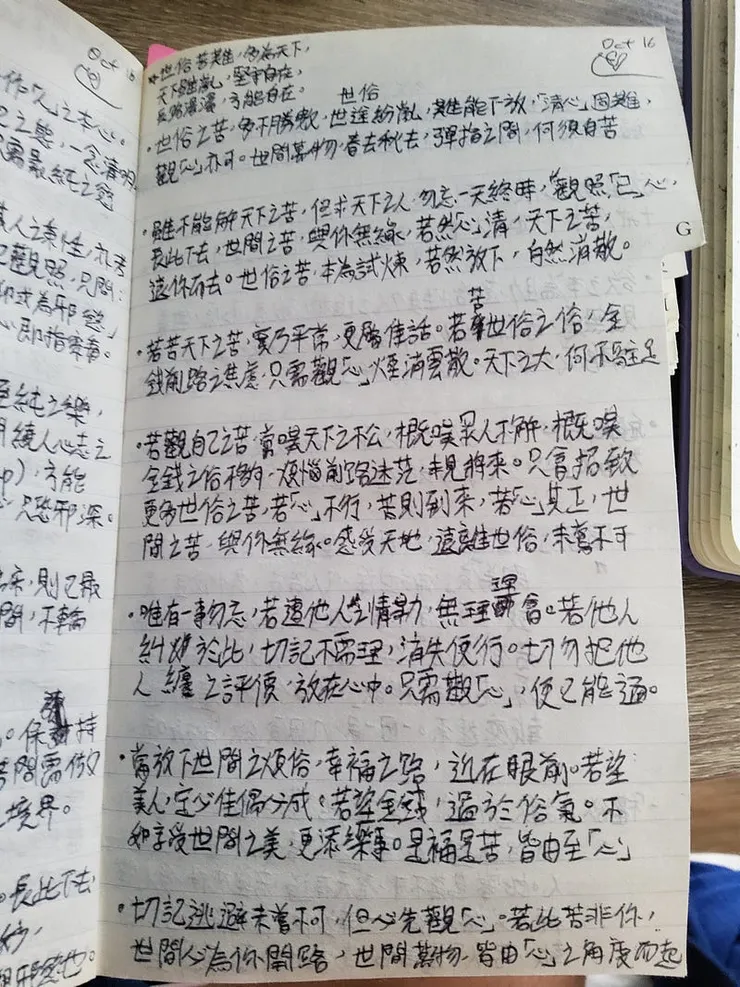 Oct 16
作「人」之本心。
之態，一念清明
需最純之
人之柔性，亦考
觀照，只問：
即或為邪
即指
至純之樂，
繞人心志之
方能
只恐邪深。
則已最
間，不輸
保持
若問需做
境界。
長此下去，
妙，
Oct 16
*世俗苦難，多為天下，
天下雖亂，堅守自在，
長路漫漫，方能自在。
世俗
·世俗之苦，多不勝數，世途紛亂，難能下放，「清心」困難，
觀「心」亦可。世間萬物，春去秋去，彈指之間，何須自苦
·雖不能解天下之苦，但求天下之人，勿忘一天終時，「觀照「己」心，
長此下去，世間之苦，與你無緣，若然「心」清，天下之苦，
遠你而去。世俗之苦，本為試煉，若然放下，自然消散。
G
苦
·若苦天下之苦，實乃平常，更勝佳話。若世俗之俗，金
錢前路之焦慮，只需觀「心」，煙消雲散。天下之大，何不駐足
·若觀自己之苦，當嘆天下之不公，概嘆眾人不解，概嘆
金錢之俗不夠，煩惱前路迷茫，未見將來。只會招致
更多世俗之苦，若「心」不行，苦則到來，若「心」真正，世
間之苦，與你無緣。感受天地，遠離世俗，未嘗不可
理
·唯有一事勿忘，若遭他人對情勒，無理會。若他人
糾於此，切記不需理，消失便行。切勿把他
人纏之評價，放在心中。只需觀「心」，便已能過。
·當放下世間之煩俗，幸福之路，近在眼前。若望
美人，定必佳偶分成；若望金錢，過於俗氣。不
如享受世間之美，更添樂事。是福是苦，皆由至「心」
·切記逃避未嘗不可，但必先觀「心」。若此苦非你，
世間必為你開路，世間萬物，皆由「心」之角度而起